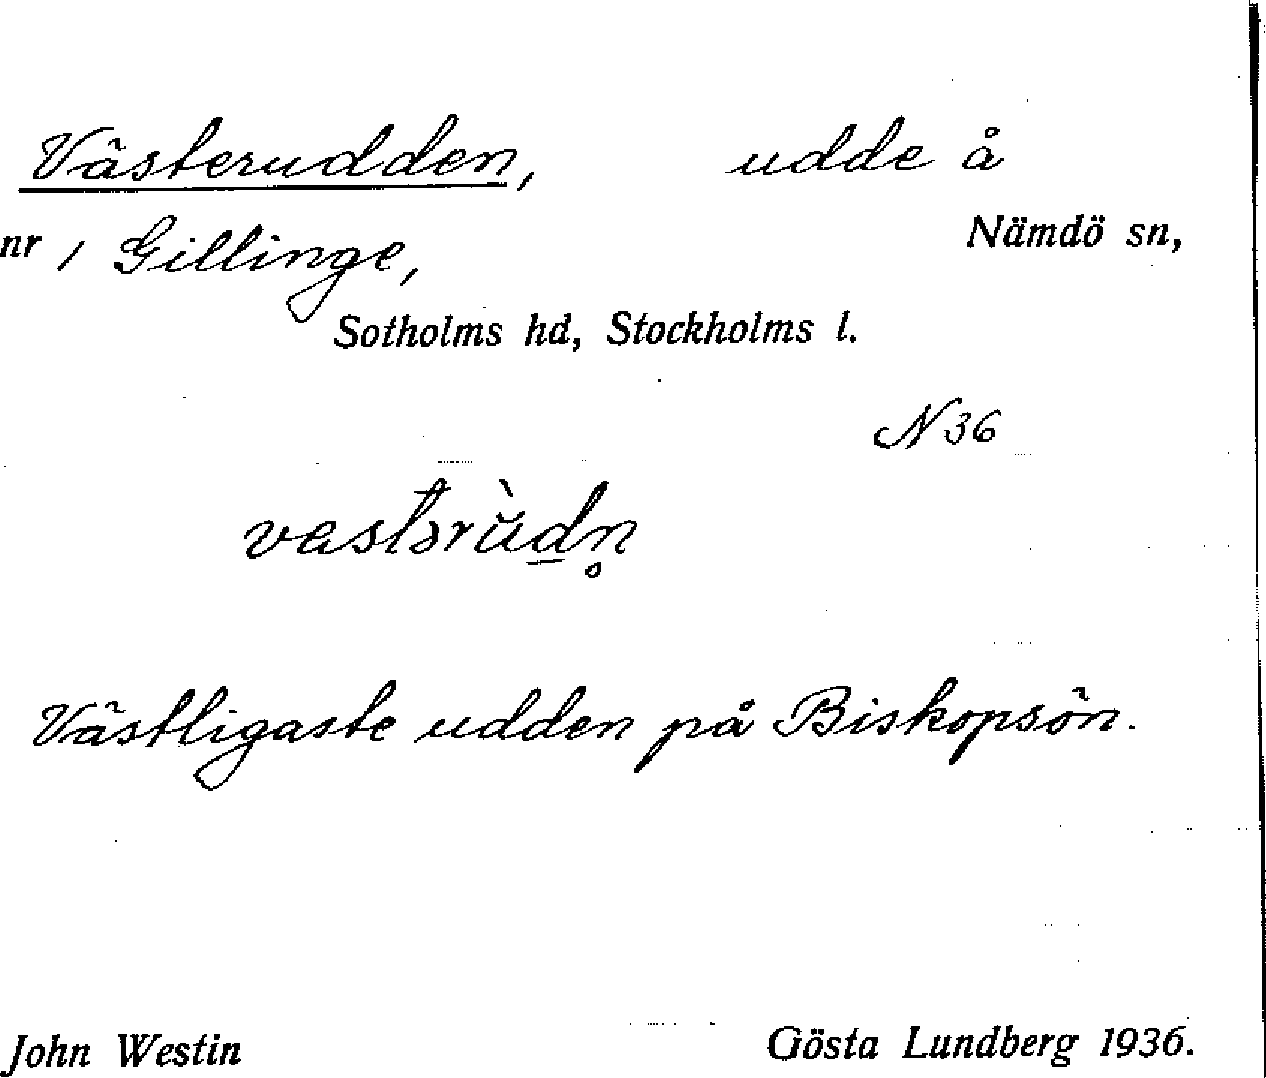 Västerudden, udde å
nr 1 Gillinge, Nämdö sn,
Sotholms hd, Stockholms l.
N 36
Västligaste udden på Biskopsön.
John Westin Gösta Lundberg 1936.